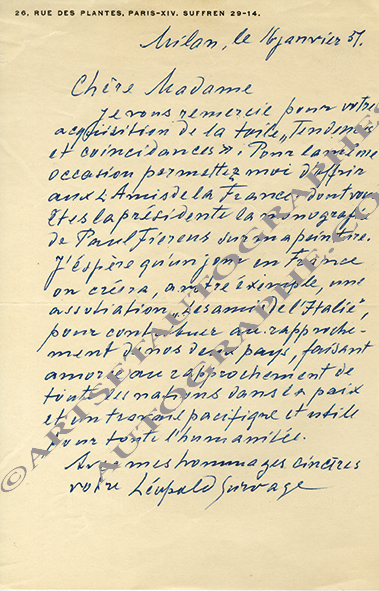 26, RUE DES PLANTES, PARIS-XIV. SUFFREN 29-14.
Milan, le 16 janvier 57.
Chère Madame
Je vous remercie pour votre
acquisition de la toile „Tendences
et coincidances”. Pour la même
occasion permettez moi d'offrir
aux „Amis de la France” dont vous
êtes la présidente la monografie
de Paul Fierens sur ma peinture.
J'éspère qu'un jour en France
on créera, a votre éxemple, une
assotiation „Les ami de l'Italie”,
pour contribuer au rapproche-
ment de nos deux pays, faisant
amorce au rapprochement de
toute les nations dans la paix
et un travail pacifique et utile
pour toute l'humanitée.
Avec mes hommages cincères
votre Léopold Survage
© ARTISET AUTOGRAPHE.COM
AUTOGRAPHE.CO